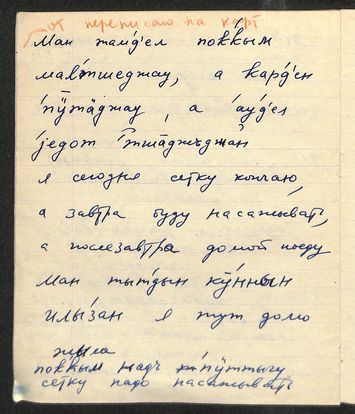 от переписаю на карт
Ман тай́д'ел поќќым
мав́тшеджау, а кард'ен
п́ӱтӓджау, а а́уд'ел
једот тша́джъджан
я сегодня сетку кончаю,
а завтра буду насаживать,
а послезавтра домой поеду
Ман тытдын кӯннын
илы́зан я тут долго
жила
поќќым надъ п́ӱттыгу
сетку надо насаживать